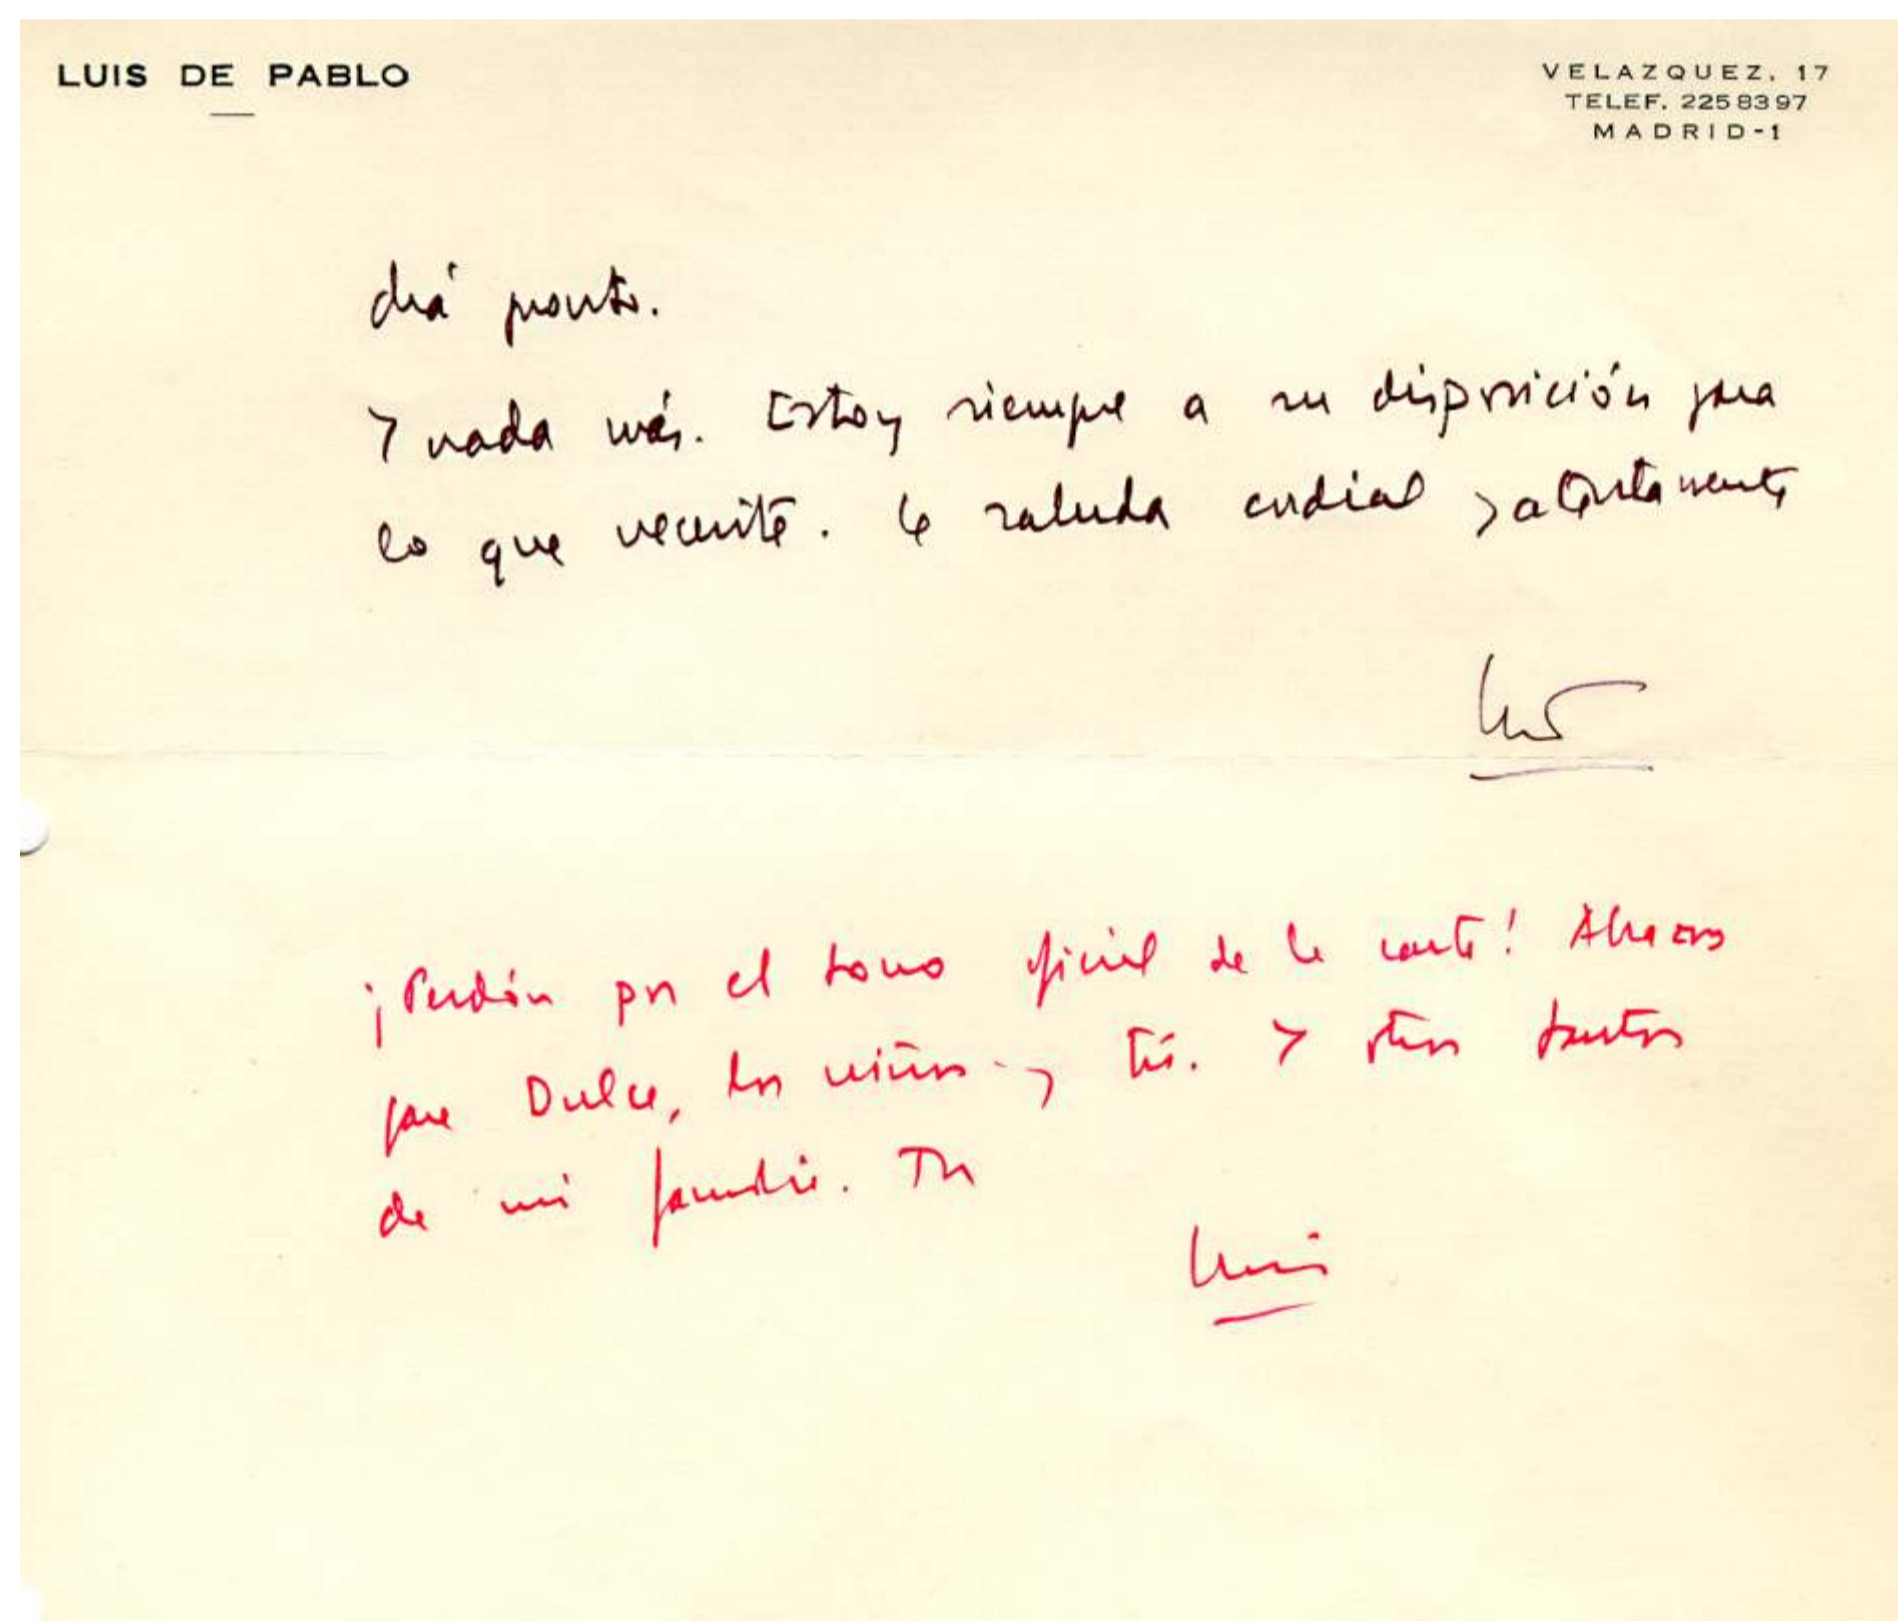 LUIS DE PABLO
VELAZQUEZ, 17
TELEF. 225 83 97
MADRID-1
drá pronto.
Y nada más. Estoy siempre a su disposición para
lo que necesite. Le saluda cordial y atentamente
Luis
¡Perdón por el tono oficial de la carta! Abrazos
para Dulce, los niños y tú. Y otros tantos
de mi familia. Tu
Luis